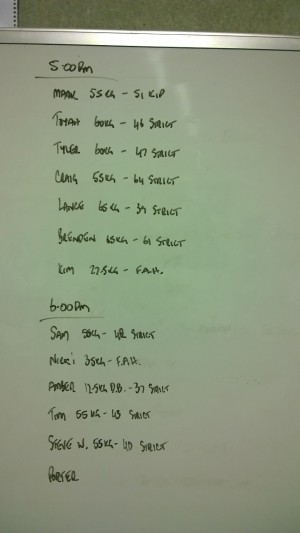 5:00PM
MARK 55KG - 51 KIP
TOYAH 60KG - 46 STRICT
TYLER 60KG - 47 STRICT
CRAIG 55KG - 64 STRICT
LANCE 65KG - 39 STRICT
BRENDEN 65KG - 61 STRICT
KIM 27.5KG - F.A.H.
6:00PM
SAM 55KG - 42 STRICT
NICKI 35KG - F.A.H.
AMBER 12.5KG D.B. - 37 STRICT
TOM 55KG - 43 STRICT
STEVE W. 55KG - 40 STRICT
PORTER